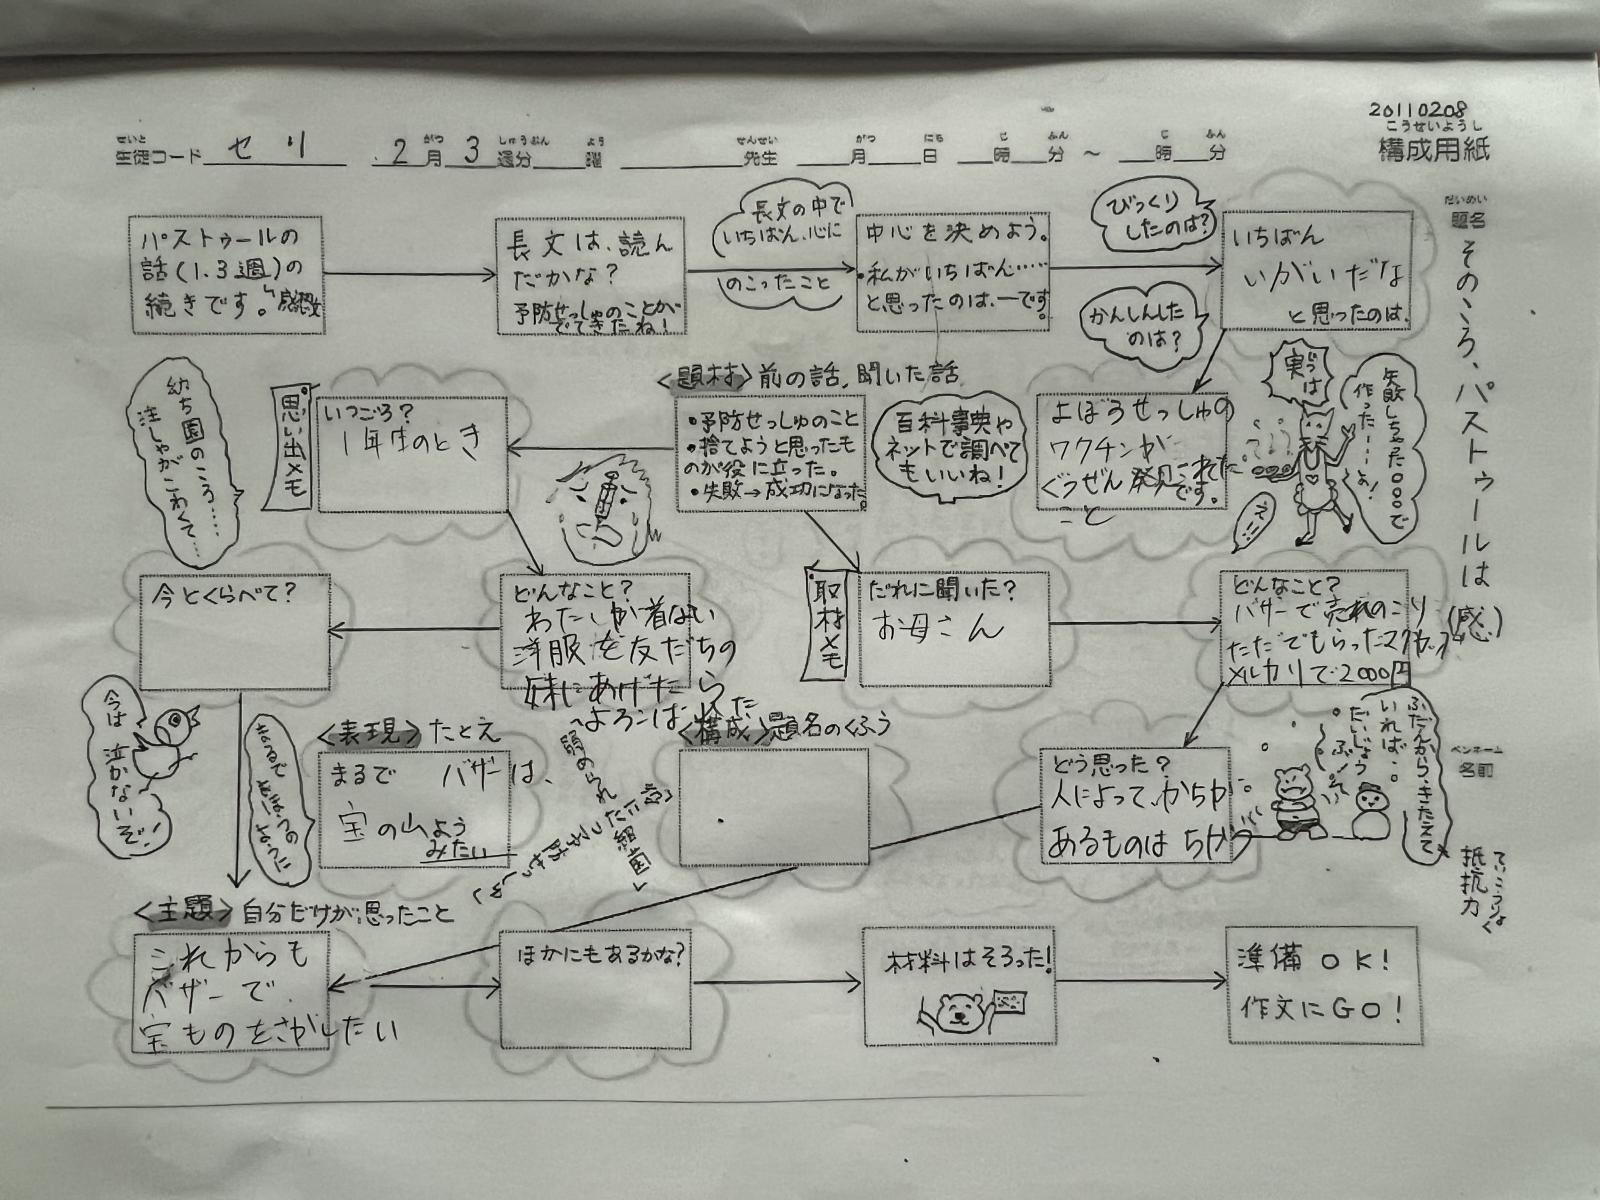 20110208
こうせいようし
構成用紙
せいと
生徒コード セリ
がつ しゅうぶん よう
2月3週分 曜
せんせい
先生
がつ にち じ ふん じ ふん
月 日 時 分 ～ 時 分
だいめい
題名
そのころ、パストゥールは(感)
ペンネーム
名前
パストゥールの
話(1.3週)の
続きです。
感想文
長文は、読ん
だかな?
予防せっしゅのことが
でてきたね!
長文の中で
いちばん、心に
のこったこと
中心を決めよう。
・私がいちばん……
と思ったのは、ーです。
びっくり
したのは?
かんしんした
のは?
いちばん
いがいだな
と思ったのは、
実は
失敗しちゃった○○○で
作った…よ!
よぼうせっしゅの
ワクチンが
ぐうぜん発見されたです。
こと
<題材>前の話,聞いた話
・予防せっしゅのこと
・捨てようと思ったも
のが役に立った。
・失敗→成功になった。
百科事典や
ネットで調べて
もいいね!
思い出メモ
いつごろ?
1年生のとき
幼ち園のころ……
注しゃがこわくて…
今とくらべて?
どんなこと?
わたしが着ない
洋服を友だちの
妹にあげたら
よろこばれた
取材メモ
だれに聞いた?
お母さん
どんなこと?
バザーで売れのこり
ただでもらったマグカップ
メルカリで2000円
今は泣かないぞ!
<表現>たとえ
まるで バザーは、
宝の山よう
みたい
弱められた細菌
<構成>題名のくふう
どう思った?
人によって、かちが
あるものはちがう
ふだんから、きたえて
いれば…。
だいじょう
ぶ!ぞ
ていこうりょく
抵抗力
<主題>自分だけが思ったこと
これからも
バザーで
宝ものをさがしたい
ほかにもあるかな?
材料はそろった!
準備OK!
作文にGO!